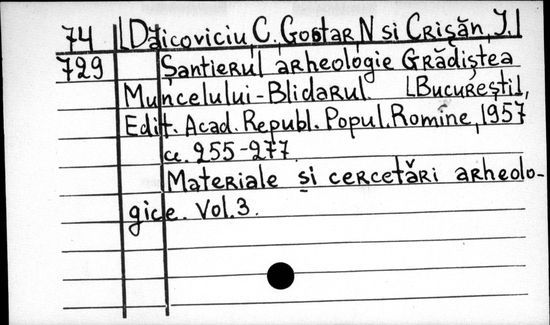 74 [Daicoviciu C. Gostar N si Crişăn, I.]
729 Şantierul arheologie Grădiştea
Muncelului-Blidarul. [Bucureşti],
Edit. Acad. Republ. Popul. Romîne, 1957
c. 255-277.
Materiale şi cercetări arheolo-
gice. Vol.3.